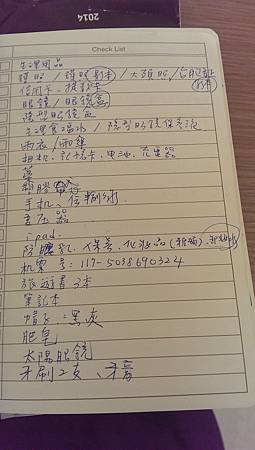 2014
Check List
生理用品
護照/護照影本/大頭照/台胞證
影本
信用卡、提款卡
眼鏡/眼鏡盒
隱型眼鏡盒
生理食鹽水/隱型眼鏡保養液
雨衣/雨傘
相機、記憶卡、電池、充電器
藥
手機、傳輸線
變壓器
ipad
防曬乳、保養、化妝品
機票 号:117-5038690324
旅遊書3本
筆記本
帽子:黑灰
肥皂
太陽眼鏡
牙刷2支、牙膏